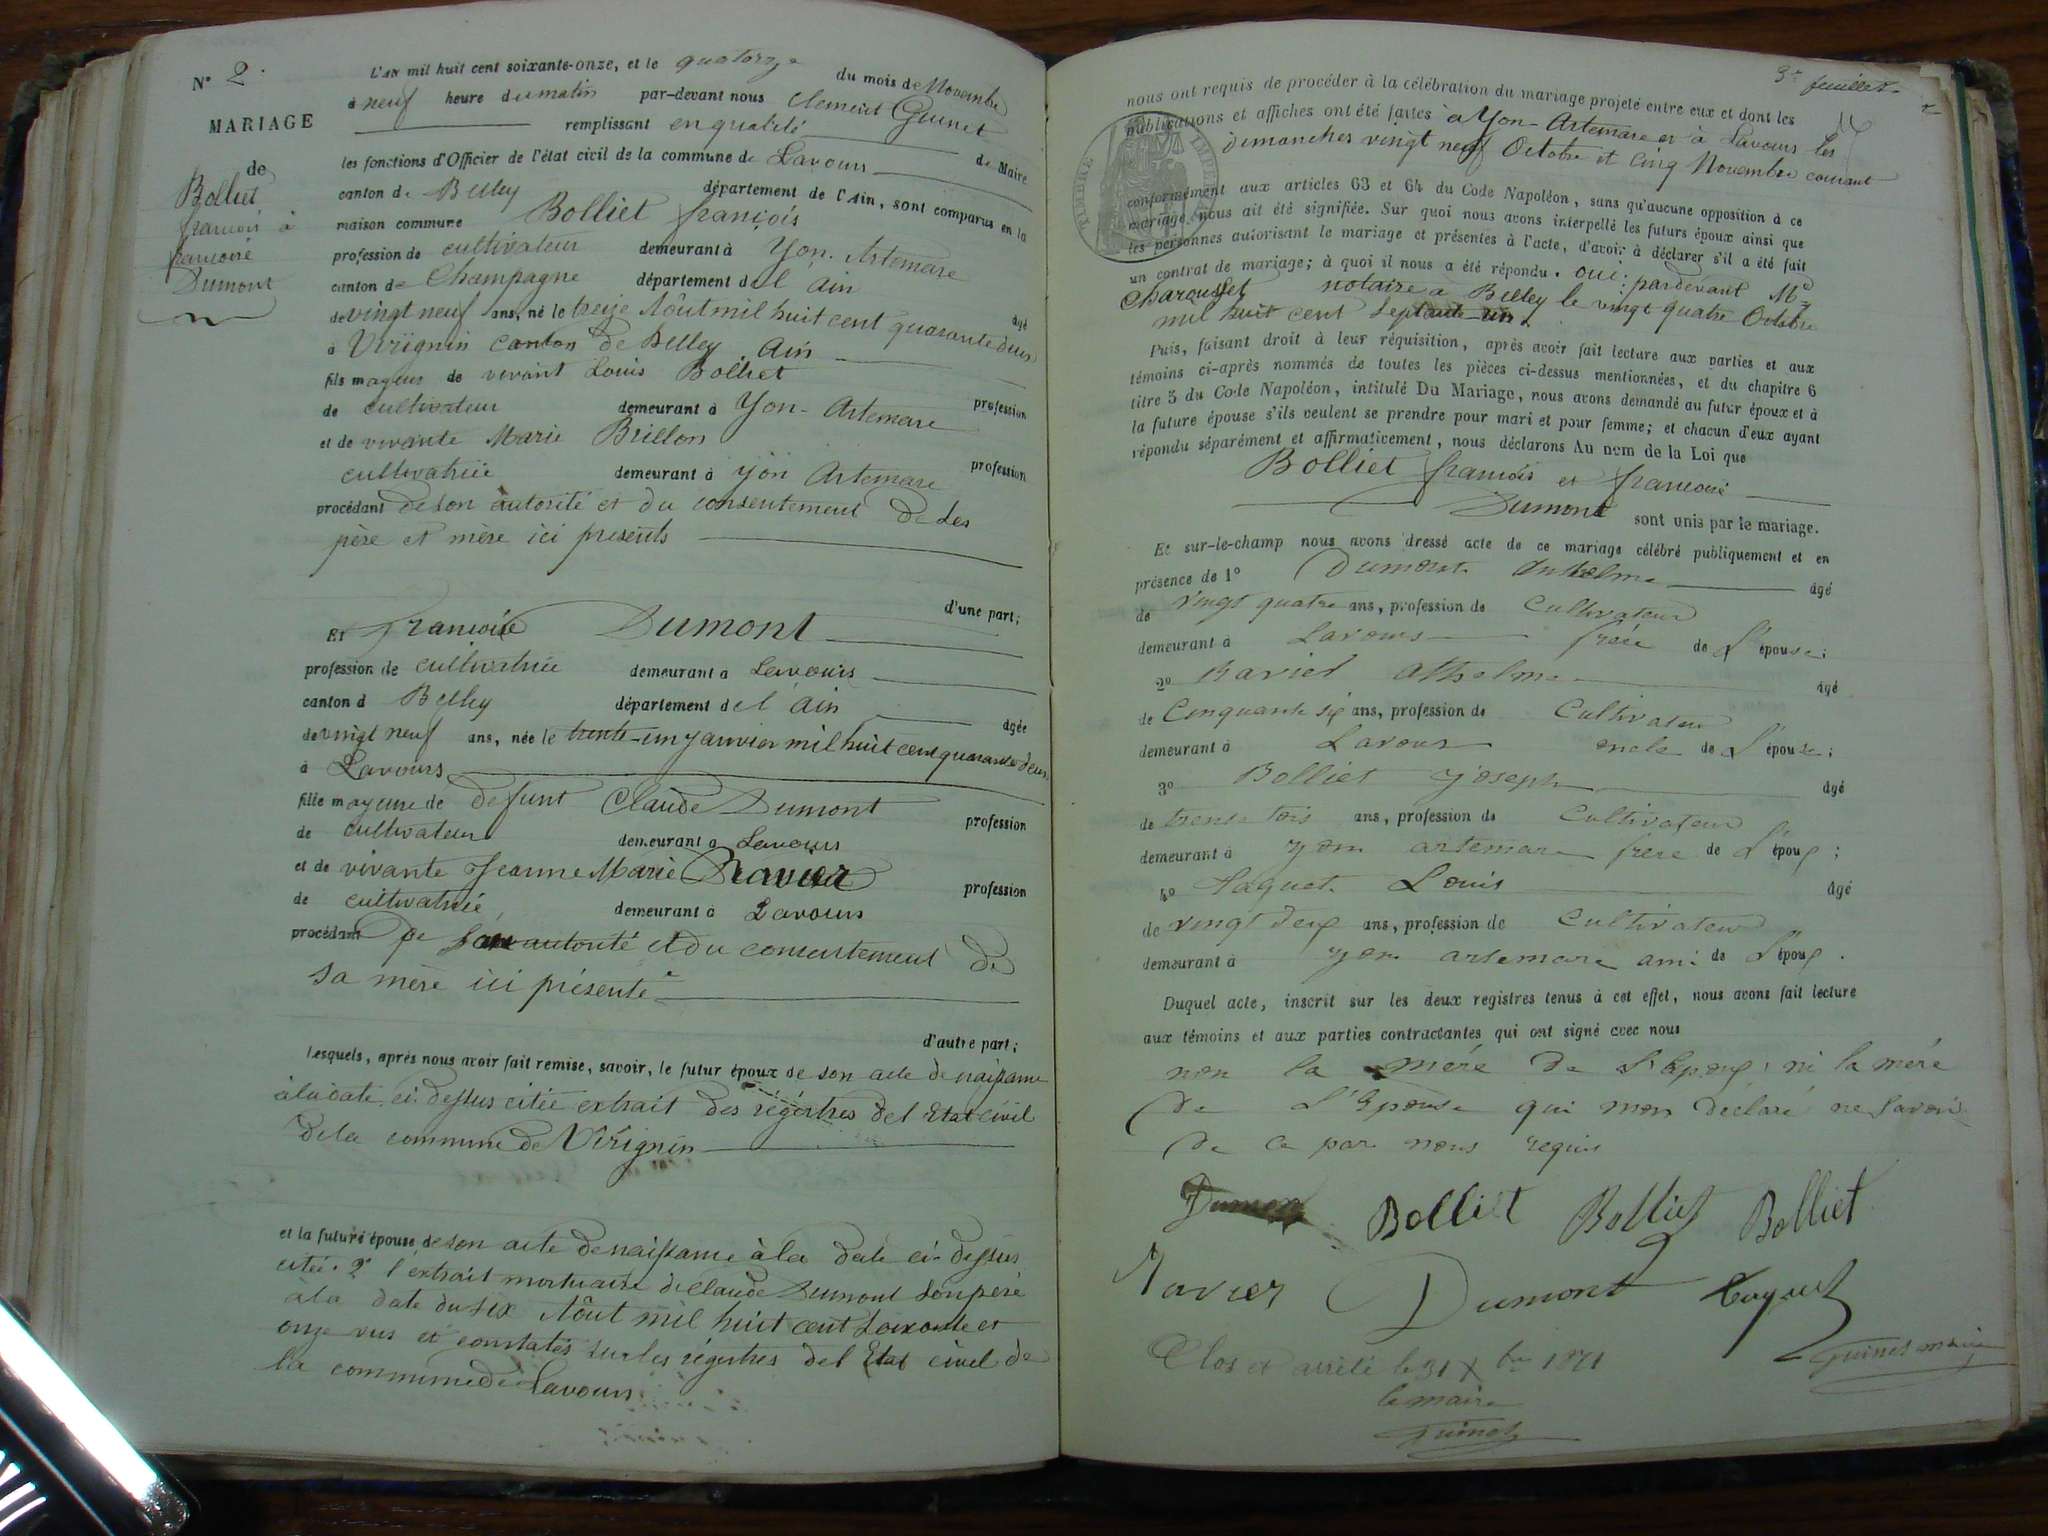 N° 2.
MARIAGE
de
Bolliet
francois à
francoise
Dumont
L'an mil huit cent soixante-onze, et le quatorze du mois de Novembre
à neuf heure du matin par-devant nous Clement Guinet
remplissant en qualité de Maire
les fonctions d'Officier de l'état civil de la commune de Lavours
canton de Belley département de l'Ain, sont comparus en la
maison commune Bolliet françois
profession de cultivateur demeurant à Yon-Artemare
canton de Champagne département de l'Ain âgé
de vingt neuf ans, né le treize Aôut mil huit cent quarante deux
à Virignin canton de Belley Ain
fils mageur de vivant Louis Bolliet profession
de cultivateur demeurant à Yon-Artemare
et de vivante Marie Brillon profession
cultivatrice demeurant à Yon Artemare
procédant de son autorité et du consentement de ses
père et mère ici presents
d'une part;
Et francoise Dumont
profession de cultivatrice demeurant à Lavours
canton d Belley département de l'Ain âgée
de vingt neuf ans, née le trente-un janvier mil huit cent quarante deux
à Lavours
fille mageure de defunt Claude Dumont profession
de cultivateur demeurant à Lavours
et de vivante Jeanne Marie Ravier profession
de cultivatrice demeurant à Lavours
procédant de son autorité et du consentement de
sa mère ici présente
d'autre part;
lesquels, après nous avoir fait remise, savoir, le futur époux de son acte de naissance
à la date ci-dessus citée extrait des régistres de l'Etat civil
de la commune de Virignin
et la future épouse de son acte de naissance à la date ci-dessus
citée. 2° l'extrait mortuaire de Claude Dumont son père
à la date du six Aôut mil huit cent soixante et
onze vus et constatés sur les régistres de l'Etat civil de
la commune de Lavours
3e feuillet.
nous ont requis de procéder à la célébration du mariage projeté entre eux et dont les
publications et affiches ont été faites à Yon-Artemare et à Lavours les
dimanches vingt neuf Octobre et cinq Novembre courant
TIMBRE IMPÉRIAL
conformément aux articles 63 et 64 du Code Napoléon, sans qu'aucune opposition à ce
mariage nous ait été signifiée. Sur quoi nous avons interpellé les futurs époux ainsi que
les personnes autorisant le mariage et présentes à l'acte, d'avoir à déclarer s'il a été fait
un contrat de mariage; à quoi il nous a été répondu. oui: pardevant Me
notaire à Belley le vingt quatre Octobre
mil huit cent septante-un
Puis, faisant droit à leur réquisition, après avoir fait lecture aux parties et aux
témoins ci-après nommés de toutes les pièces ci-dessus mentionnées, et du chapitre 6
titre 5 du Code Napoléon, intitulé Du Mariage, nous avons demandé au futur époux et à
la future épouse s'ils veulent se prendre pour mari et pour femme; et chacun d'eux ayant
répondu séparément et affirmativement, nous déclarons Au nom de la Loi que
Bolliet francois et francoise
Dumont sont unis par le mariage.
Et sur-le-champ nous avons dressé acte de ce mariage célébré publiquement et en
présence de 1° Dumont Anthelme âgé
de vingt quatre ans, profession de Cultivateur
demeurant à Lavours frere de L'épouse;
2° Ravier Athelme âgé
de Cinquante six ans, profession de Cultivateur
demeurant à Lavours oncle de L'épouse;
3° Bolliet Joseph âgé
de trente tois ans, profession de Cultivateur
demeurant à yon artemare frere de L'époux;
4° Louis âgé
de vingt deux ans, profession de Cultivateur
demeurant à yon artemare ami de L'époux.
Duquel acte, inscrit sur les deux registres tenus à cet effet, nous avons fait lecture
aux témoins et aux parties contractantes qui ont signé avec nous
non la mére de L'Epoux, ni la mére
de L'Epouse qui mon déclaré ne Savoir
de ce par nous requis
Dumon Bolliet Bolliet Bolliet
Ravier Dumont
Guinet maire
Clos et arrêté le 31 Xbre 1871
le maire
Guinet